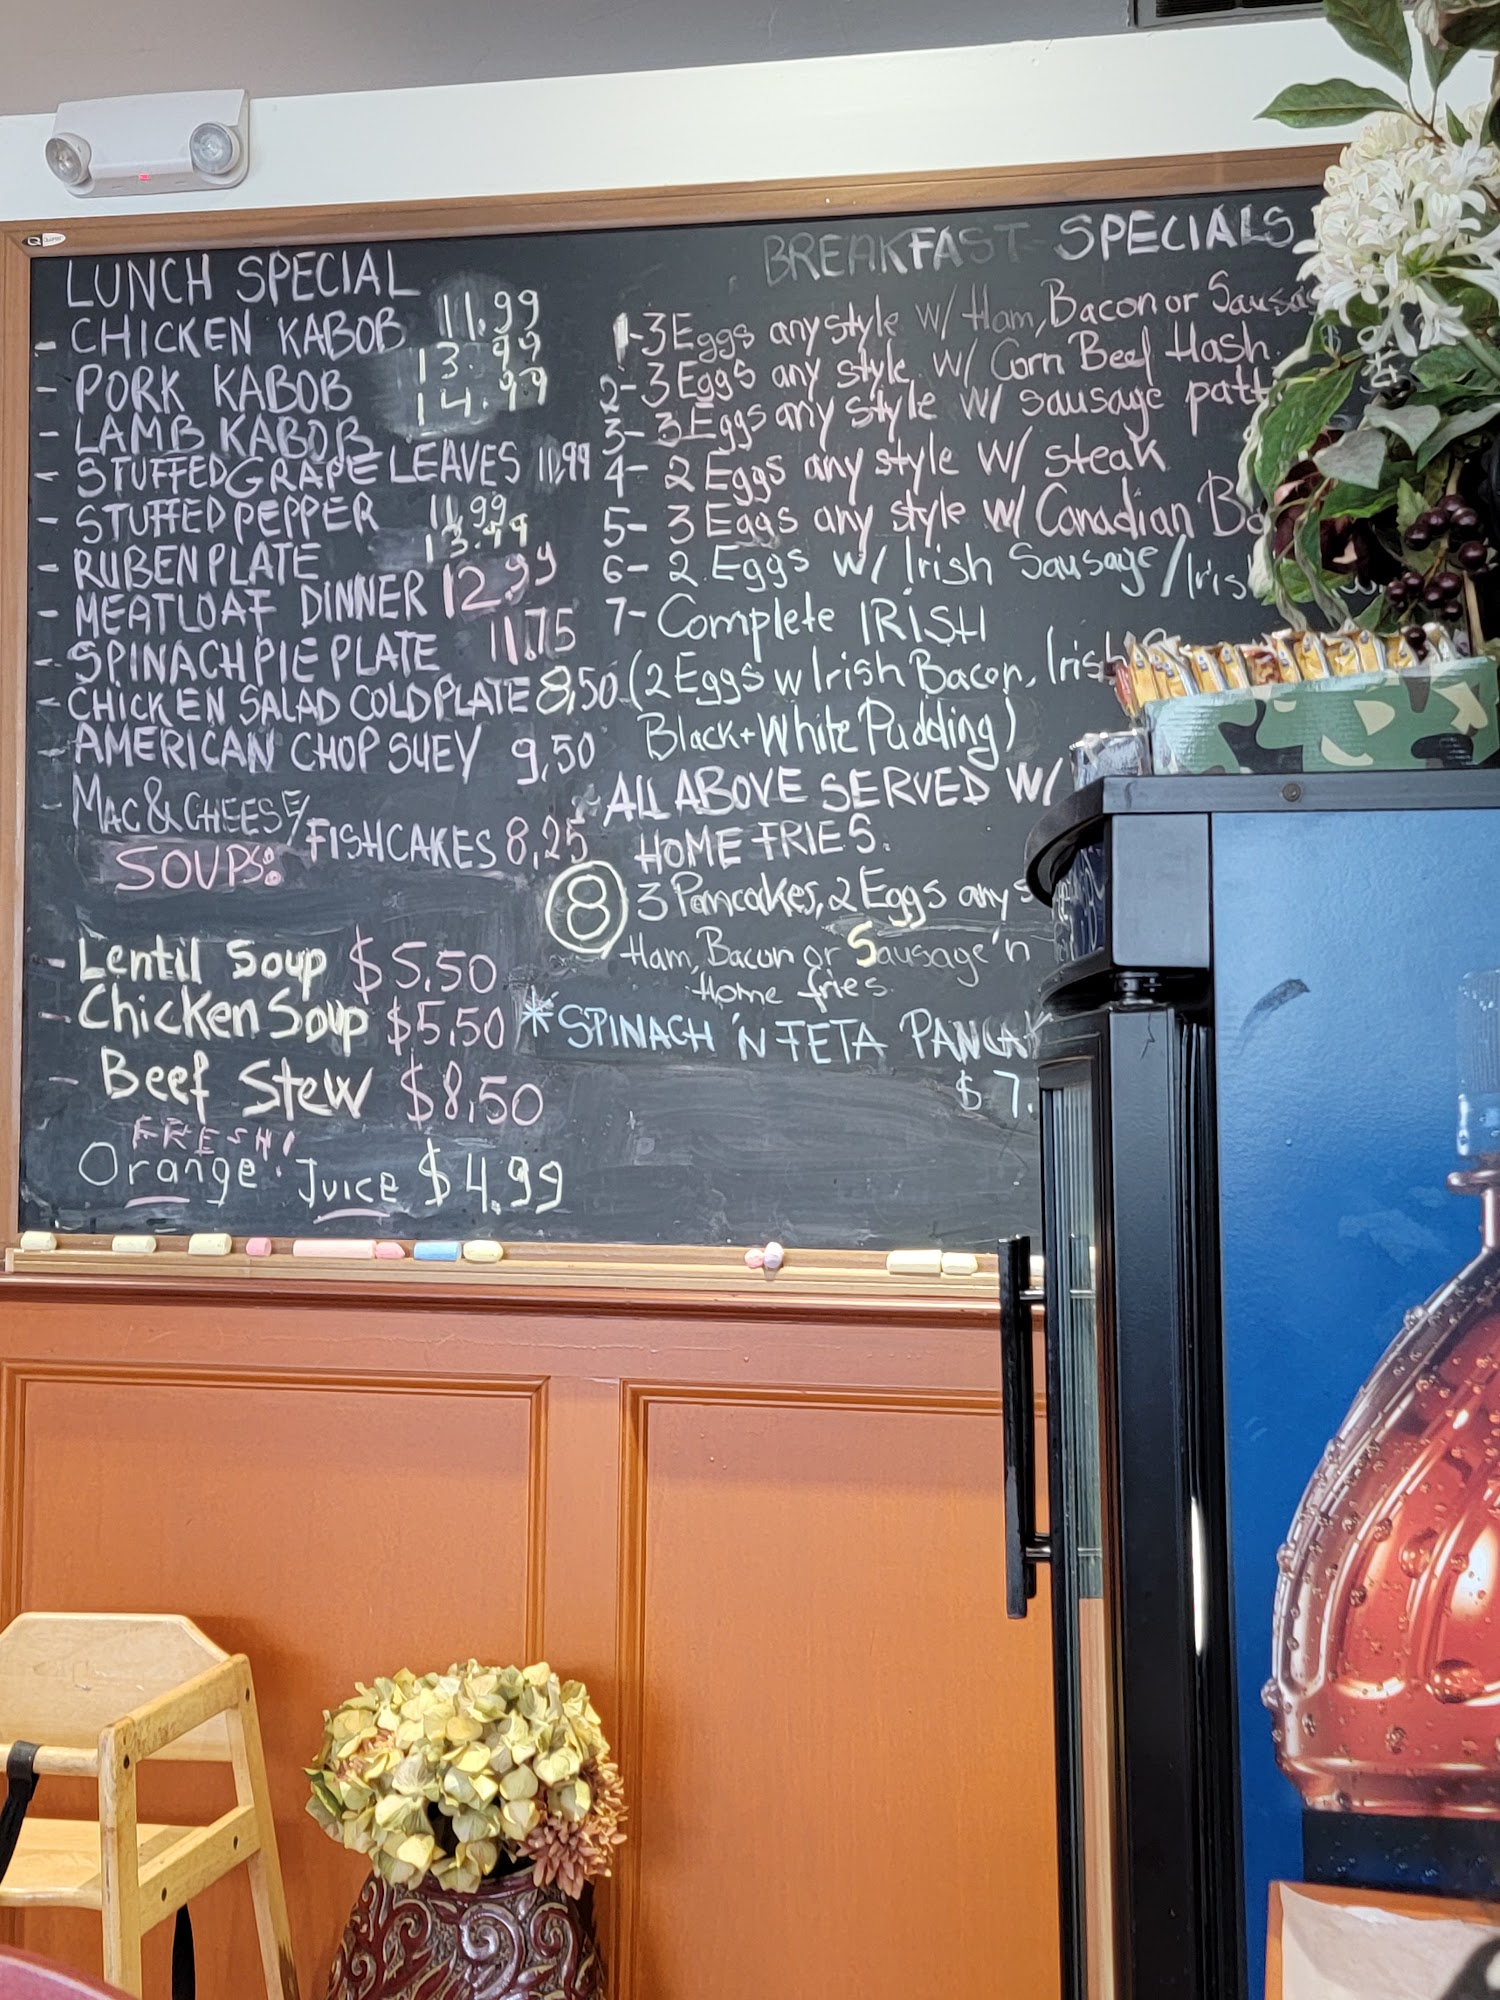 LUNCH SPECIAL
- CHICKEN KABOB 11.99
- PORK KABOB 13.99
- LAMB KABOB 14.99
- STUFFED GRAPE LEAVES 11.99
- STUFFED PEPPER 11.99
- RUBEN PLATE 13.99
- MEATLOAF DINNER 12.99
- SPINACH PIE PLATE 11.75
- CHICKEN SALAD COLD PLATE 8,50
- AMERICAN CHOP SUEY 9,50
- MAC & CHEESE/FISHCAKES 8,25
SOUPS:
- Lentil Soup $5,50
- Chicken Soup $5,50
- Beef Stew $8,50
FRESH!
Orange Juice $4.99
BREAKFAST SPECIALS
1-3 Eggs any style w/ Ham, Bacon or
2-3 Eggs any style w/ Corn Beef Hash.
3-3 Eggs any style w/ sausage
4- 2 Eggs any style w/ steak
5- 3 Eggs any style w/ Canadian
6- 2 Eggs w/ Irish Sausage/
7- Complete IRISH
(2 Eggs w Irish Bacon,
Black + White Pudding)
ALL ABOVE SERVED W/
HOME FRIES.
8 3 Pancakes, 2 Eggs any
Ham, Bacon or Sausage 'n
Home fries
* SPINACH 'N FETA
$ 7.